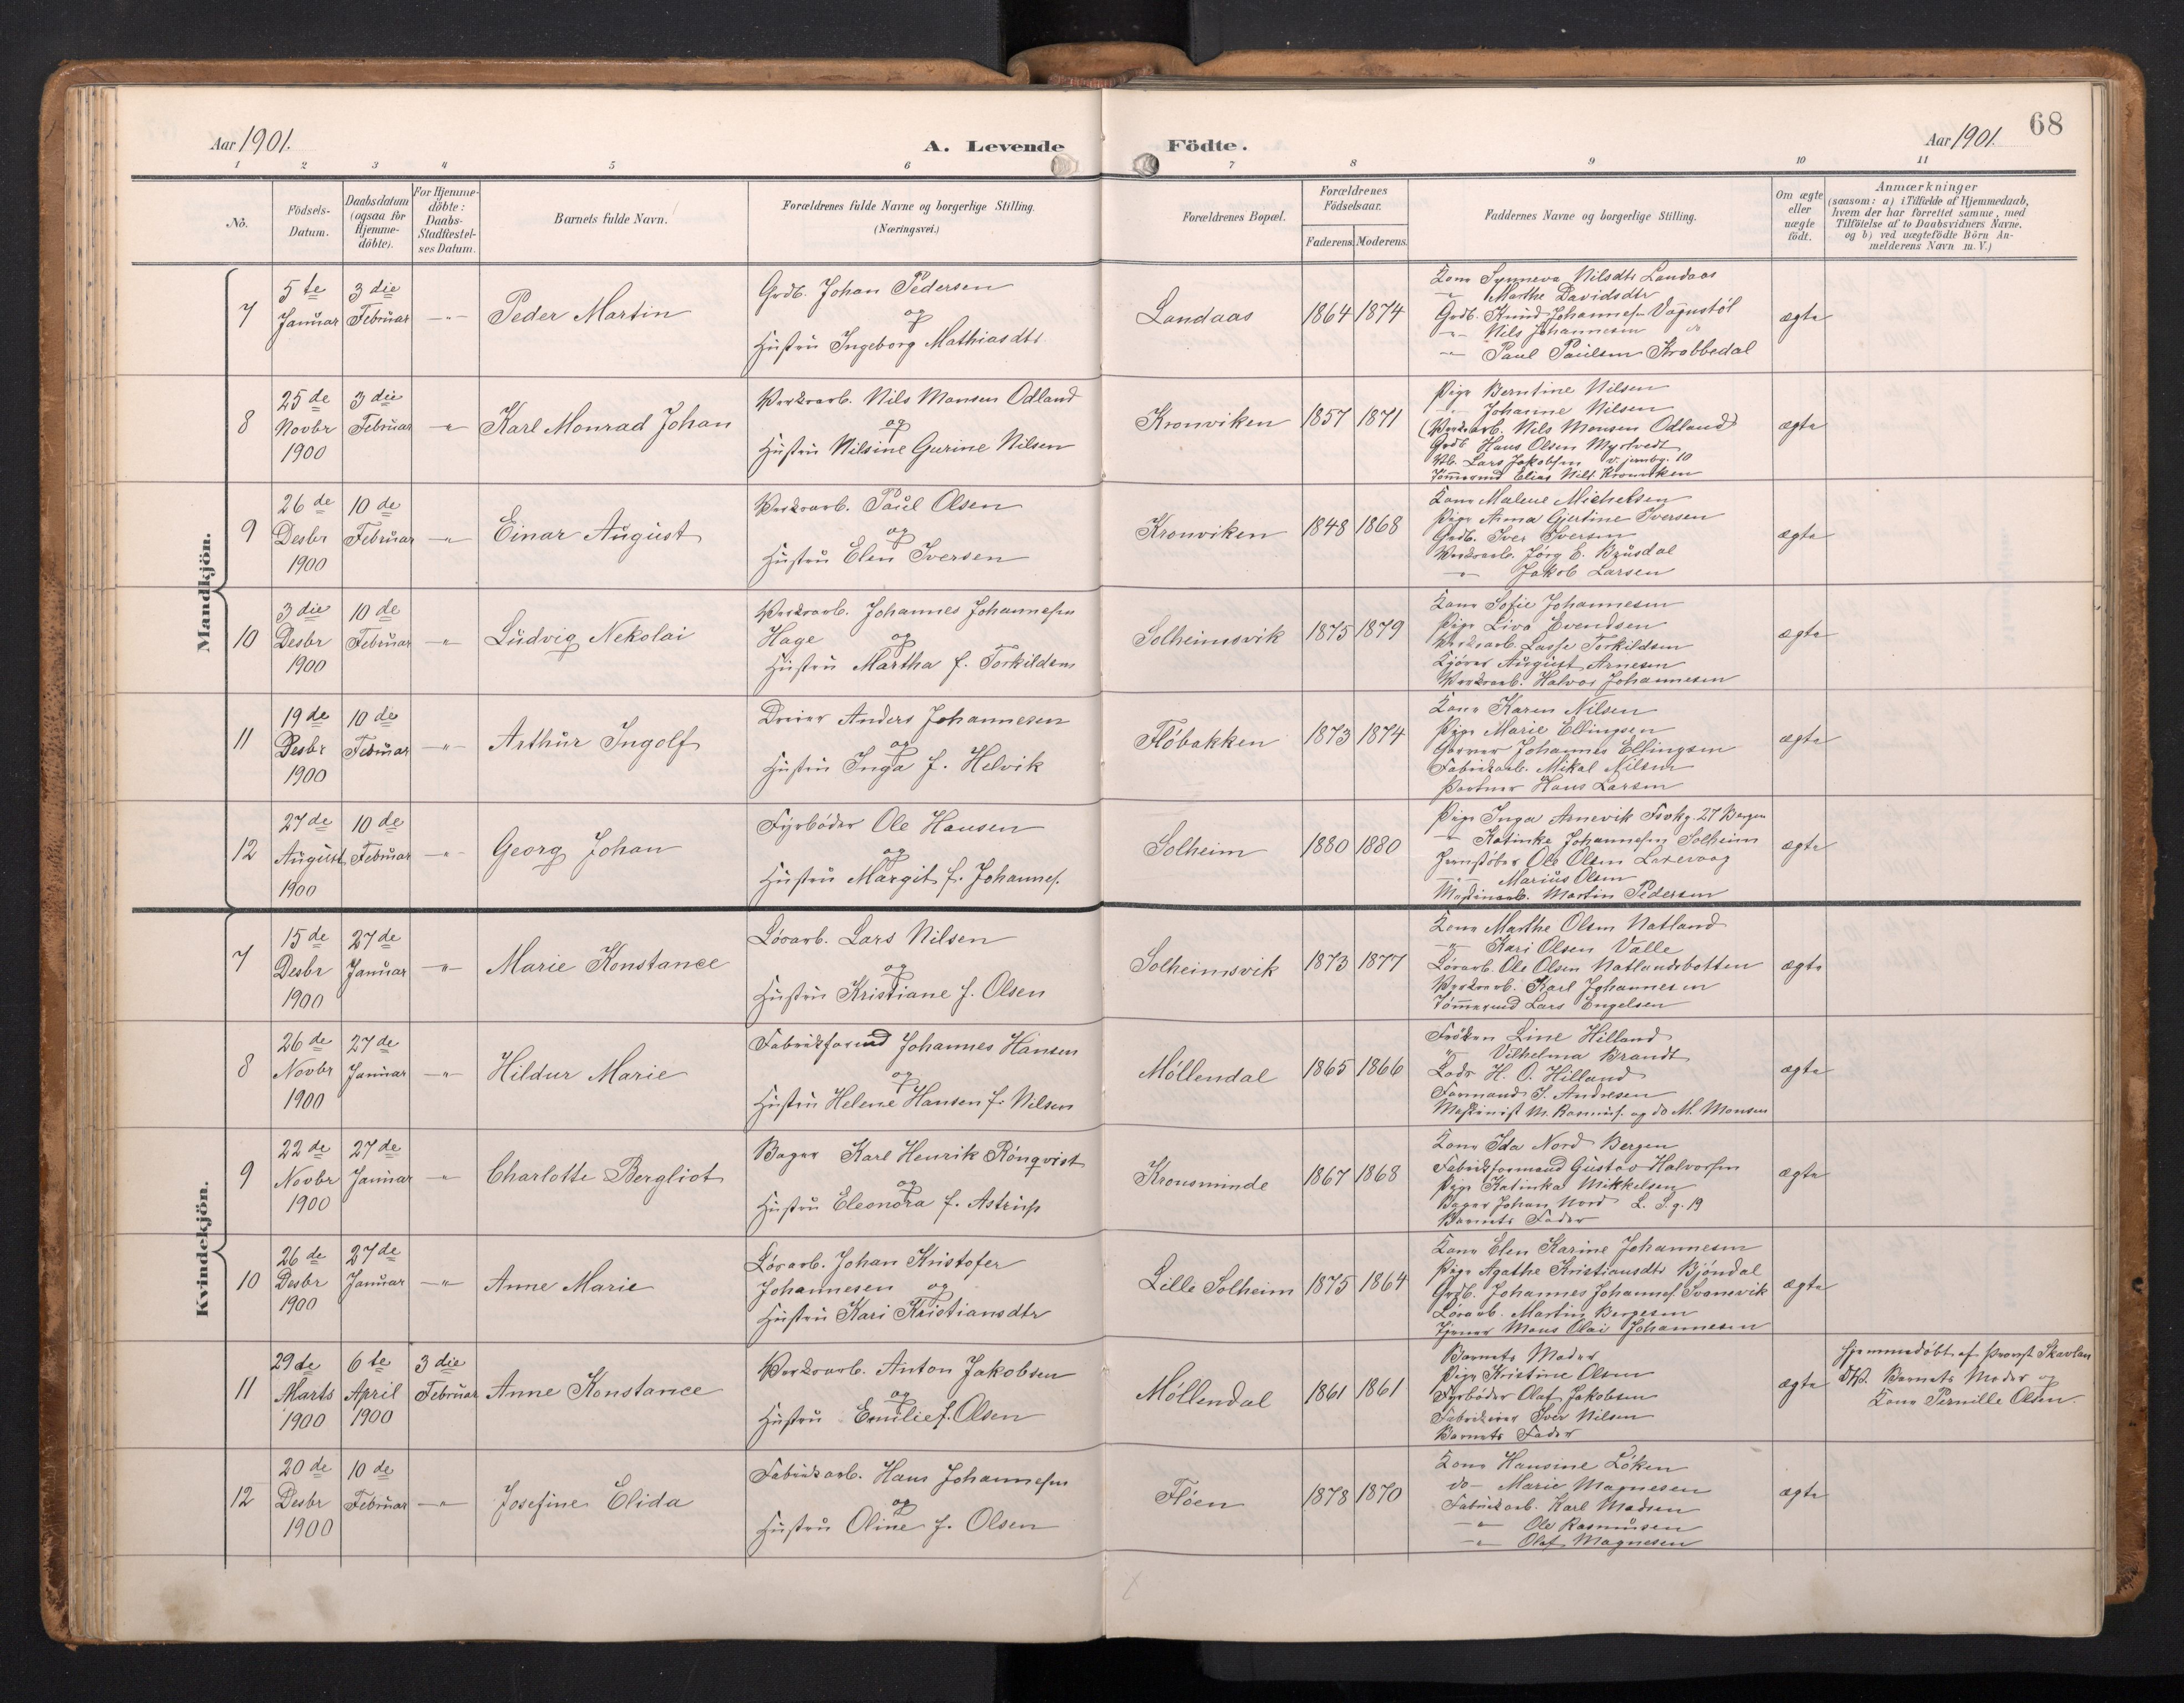 68
Aar 1901.
A. Levende Födte.
Aar 1901.
1 2 3 4 5 6 7 8 9 10 11
No.
Födsels-Datum.
Daabsdatum (ogsaa for Hjemme-döbte).
For Hjemme-döbte: Daabs-Stadfæstelses Datum.
Barnets fulde Navn.
Forældrenes fulde Navne og borgerlige Stilling.
(Næringsvei.)
Forældrenes Bopæl.
Forældrenes Födselsaar.
Faderens. Moderens.
Faddernes Navne og borgerlige Stilling.
Om ægte eller uægte födt.
Anmærkninger
(saasom: a) i Tilfælde af Hjemmedaab,
hvem der har forrettet samme, med
Tilföielse af to Daabsvidners Navne,
og b) ved uægtefödte Börn An-
melderens Navn m. V.)
Mandkjön.
7
5te Januar
3die Februar
-"-
Peder Martin
Grdb. Johan Pedersen
og
Hustru Ingeborg Mathiasdtr
Landaas
1864 1874
Kone Synneva Nilsdtr Landaas
-"- Marthe Davidsdtr
Grdb. Knud Johannesen Vögnstöl
-"- Nils Johannesen do
-"- Paul Paulsen Krobbedal
ægte
8
25de Novbr 1900
3die Februar
-"-
Karl Monrad Johan
Værksarb. Nils Monsen Odland
og
Hustru Nilsine Gurine Nilsen
Kronviken
1857 1871
Pige Berntine Nilsen
-"- Johanne Nilsen
(Værksarb. Nils Monsen Odland)
Grdb Hans Olsen Myrtvedt
Lars Jakobsen v. jernbg. 10
Tömmermd Elias Nils. Kronviken
ægte
9
26de Desbr 1900
10de Februar
-"-
Einar August
Værksarb. Paul Olsen
og
Hustru Elen Iversen
Kronviken
1848 1868
Kone Malene Michelsen
Pige Anna Gjertine Iversen
Grdb. Iver Iversen
Værksarb. Jörg E. Brusdal
-"- Jakob Larsen
ægte
10
3die Desbr 1900
10de Februar
-"-
Ludvig Nekolai
Værksarb. Johannes Johannesen
Hage og
Hustru Martha f. Torkildsen
Solheimsvik
1875 1879
Kone Sofie Johannesen
Pige Liva Evendsen
Værksarb. Lasse Torkildsen
Kjörer August Arnesen
Værksarb. Halvor Johannesen
ægte
11
19de Desbr 1900
10de Februar
-"-
Arthur Ingolf
Dreier Anders Johannesen
og
Hustru Inga f. Helvik
Flöbakken
1873 1874
Kone Karen Nilsen
Pige Marie Ellingsen
Garver Johannes Ellingsen
Fabrikarb. Mikal Nilsen
Portner Hans Larsen
ægte
12
27de August 1900
10de Februar
-"-
Georg Johan
Fyrböder Ole Hansen
og
Hustru Margit f. Johannes.
Solheim
1880 1880
Pige Inga Arnevik 27 Bergen
-"- Katinka Johannesen Solheim
Jernstöber Ole Olsen Laxevaag
-"- Marius Olsen
Maskinarb. Martin Pedersen
ægte
Kvindekjön.
7
15de Desbr 1900
27de Januar
-"-
Marie Konstance
Lösarb. Lars Nilsen
og
Hustru Kristiane f. Olsen
Solheimsvik
1873 1877
Kone Marthe Olsen Natland
-"- Kari Olsen Valle
Lösarb. Ole Olsen Natlandsbotten
Værksarb. Karl Johannesen
Tömmermd Lars Engelsen
ægte
8
26de Novbr 1900
27de Januar
-"-
Hildur Marie
Fabrikformd Johannes Hansen
og
Hustru Helene Hansen f. Nilsen
Möllendal
1865 1866
Fröken Line Hilland
-"- Vilhelma Brandt
Lods H. O. Hilland
Formand J. Andresen
Maskinist M. Rasmus. og do M. Monsen
ægte
9
22de Novbr 1900
27de Januar
-"-
Charlotte Bergliot
Bager Karl Henrik Rönqvist
og
Hustru Eleonora f. Astrup
Kronsminde
1867 1868
Kone Ida Nord Bergen
Fabrikformand Gustav Halvorsen
Pige Katinka Mikkelsen
Bager Johan Nord L. S. g. 19
Barnets Fader
ægte
10
26de Desbr 1900
27de Januar
-"-
Anne Marie
Lösarb. Johan Kristofer
Johannesen og
Hustru Kari Kristiansdtr
Lille Solheim
1875 1864
Kone Elen Karine Johannesen
Pige Agathe Kristiansdtr Bjöndal
Grdb. Johannes Johannes. Svensvik
Lösarb. Martin Bergesen
Tjener Mons Olai Johannesen
ægte
11
29de Marts 1900
6te April 1900
3die Februar
Anne Konstance
Værksarb. Anton Jakobsen
og
Hustru Emilie f. Olsen
Möllendal
1861 1861
Barnets Moder
Pige Kristine Olsen
Fyrböder Olaf Jakobsen
Iver Nilsen
Barnets Fader
ægte
Hjemmedöbt af Provst Skavlan
DV. Barnets Moder og
Kone Pernille Olsen.
12
20de Desbr 1900
10de Februar
-"-
Josefine Elida
Fabrikarb. Hans Johannesen
og
Hustru Oline f. Olsen
Flöen
1878 1870
Kone Hansine Löken
do- Marie Magnesen
Fabrikarb. Karl Madsen
-"- Ole Rasmusen
-"- Olaf Magnesen
ægte